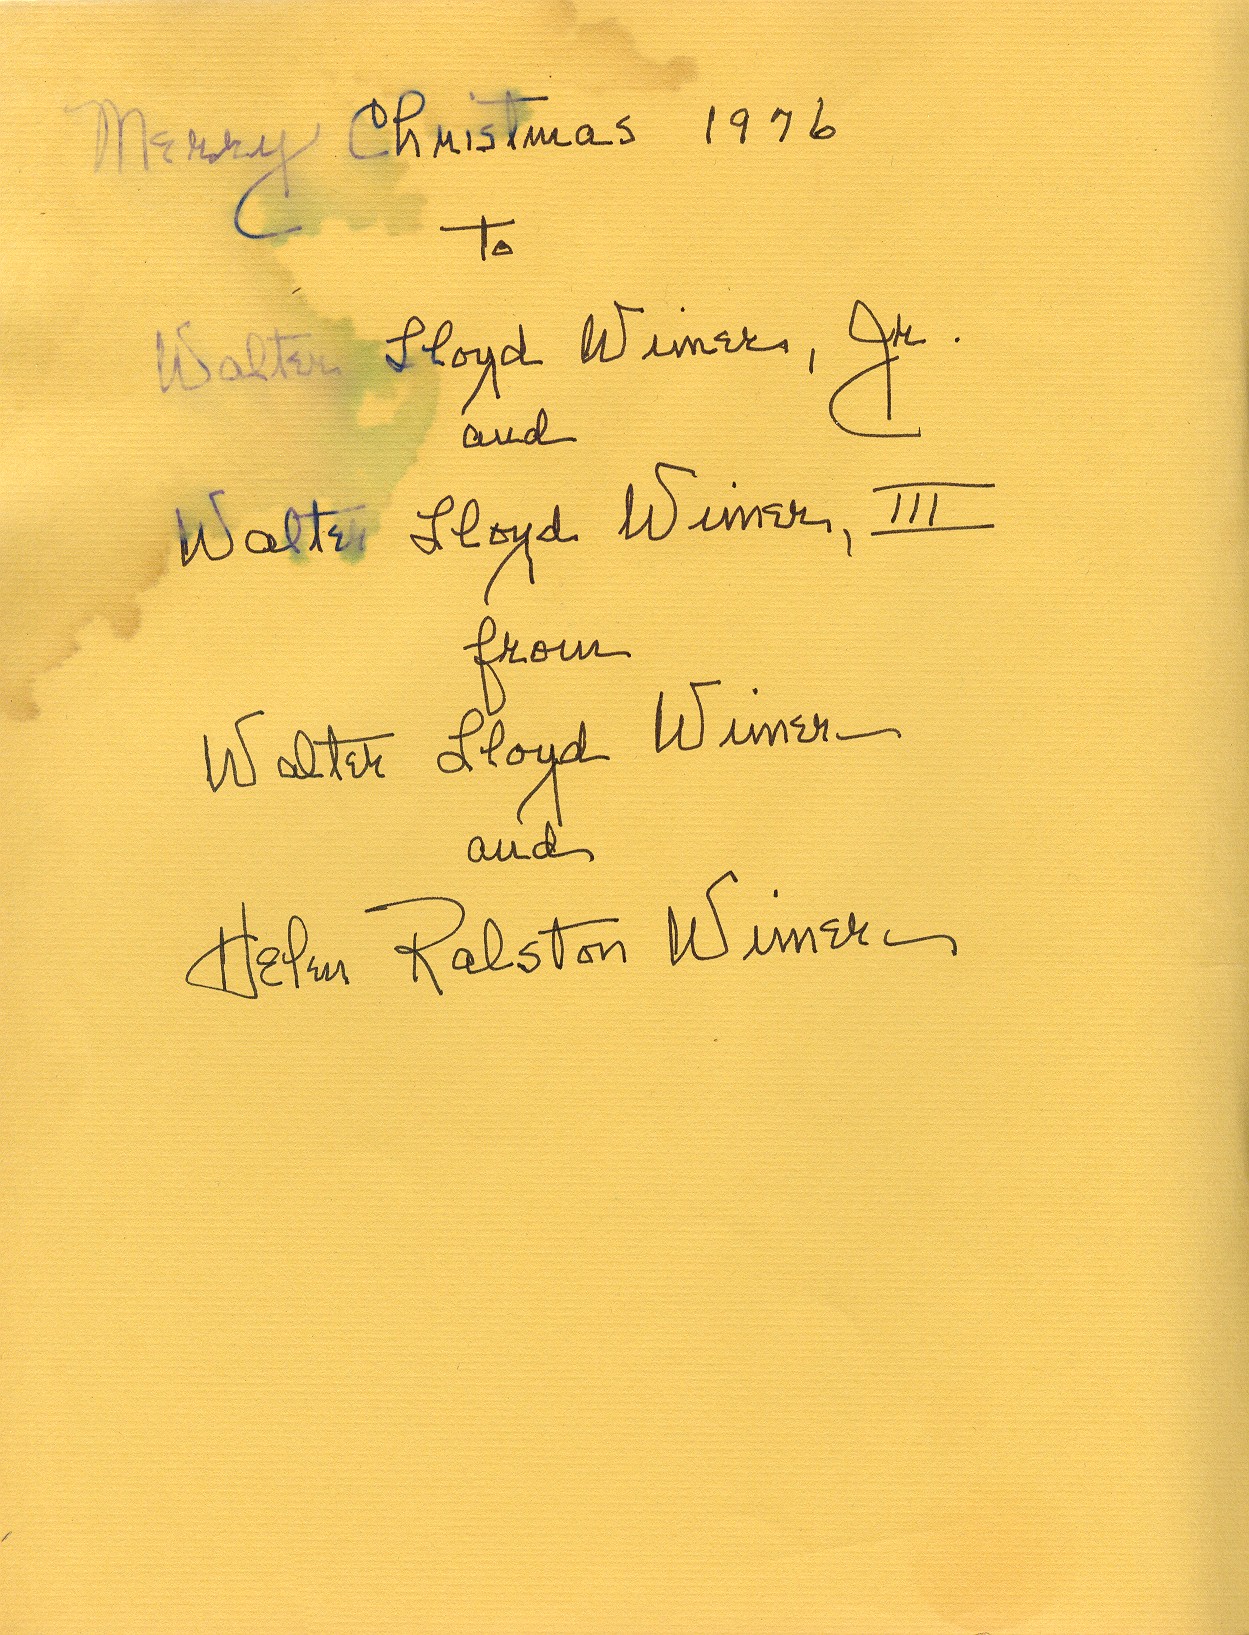 Merry Christmas 1976
to
Walter Lloyd Wimer, Jr.
and
Walter Lloyd Wimer, III
from
Walter Lloyd Wimer
and
Helen Ralston Wimer